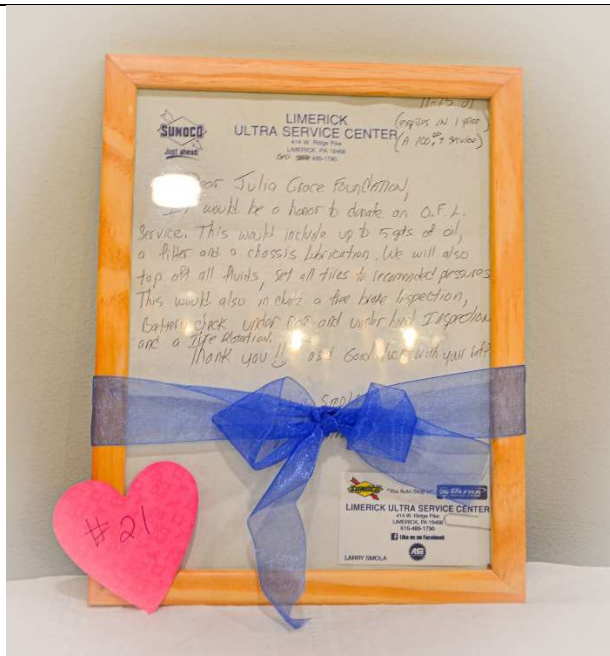 11-15-21
SUNOCO
Just ahead.
LIMERICK
ULTRA SERVICE CENTER
414 W. Ridge Pike
LIMERICK, PA 19468
610 489-1790
(expires IN 1 year)
(A 100.00 + service)
Dear Julia Grace Foundation,
It would be a honor to donate an O.F.L.
Service. This would include up to 5 qts of oil,
a filter and a chassis lubrication. We will also
top off all fluids, set all tires to recomended pressures
This would also include a free brake Inspection,
Battery check, under car and under hood Inspection
and a Tire Rotation.
Thank you!! and Good Luck with your
Smola
SUNOCO
"You Auto Stop In!"
LIMERICK ULTRA SERVICE CENTER
414 W. Ridge Pike
LIMERICK, PA 19468
610-489-1790
Like us on Facebook
ASE
LARRY SMOLA
# 21